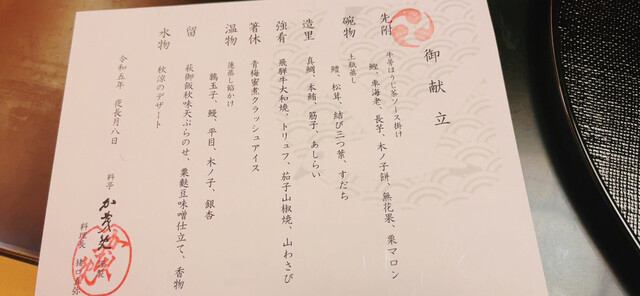 御献立
先附
牛蒡ほうじ茶ソース掛け
鰹、車海老、長芋、木ノ子餅、無花果、栗マロン
碗物
土瓶蒸し
鱧、松茸、結び三つ葉、すだち
造里
真鯛、本鮪、筋子、あしらい
強肴
飛騨牛大和焼、トリュフ、茄子山椒焼、山わさび
箸休
青梅蜜煮クラッシュアイス
温物
蓮蒸し餡かけ
鶉玉子、鰻、平目、木ノ子、銀杏
留
萩御飯秋味天ぷらのせ、粟麩豆味噌仕立て、香物
水物
秋涼のデザート
令和五年 夜長月八日
料亭
料理長